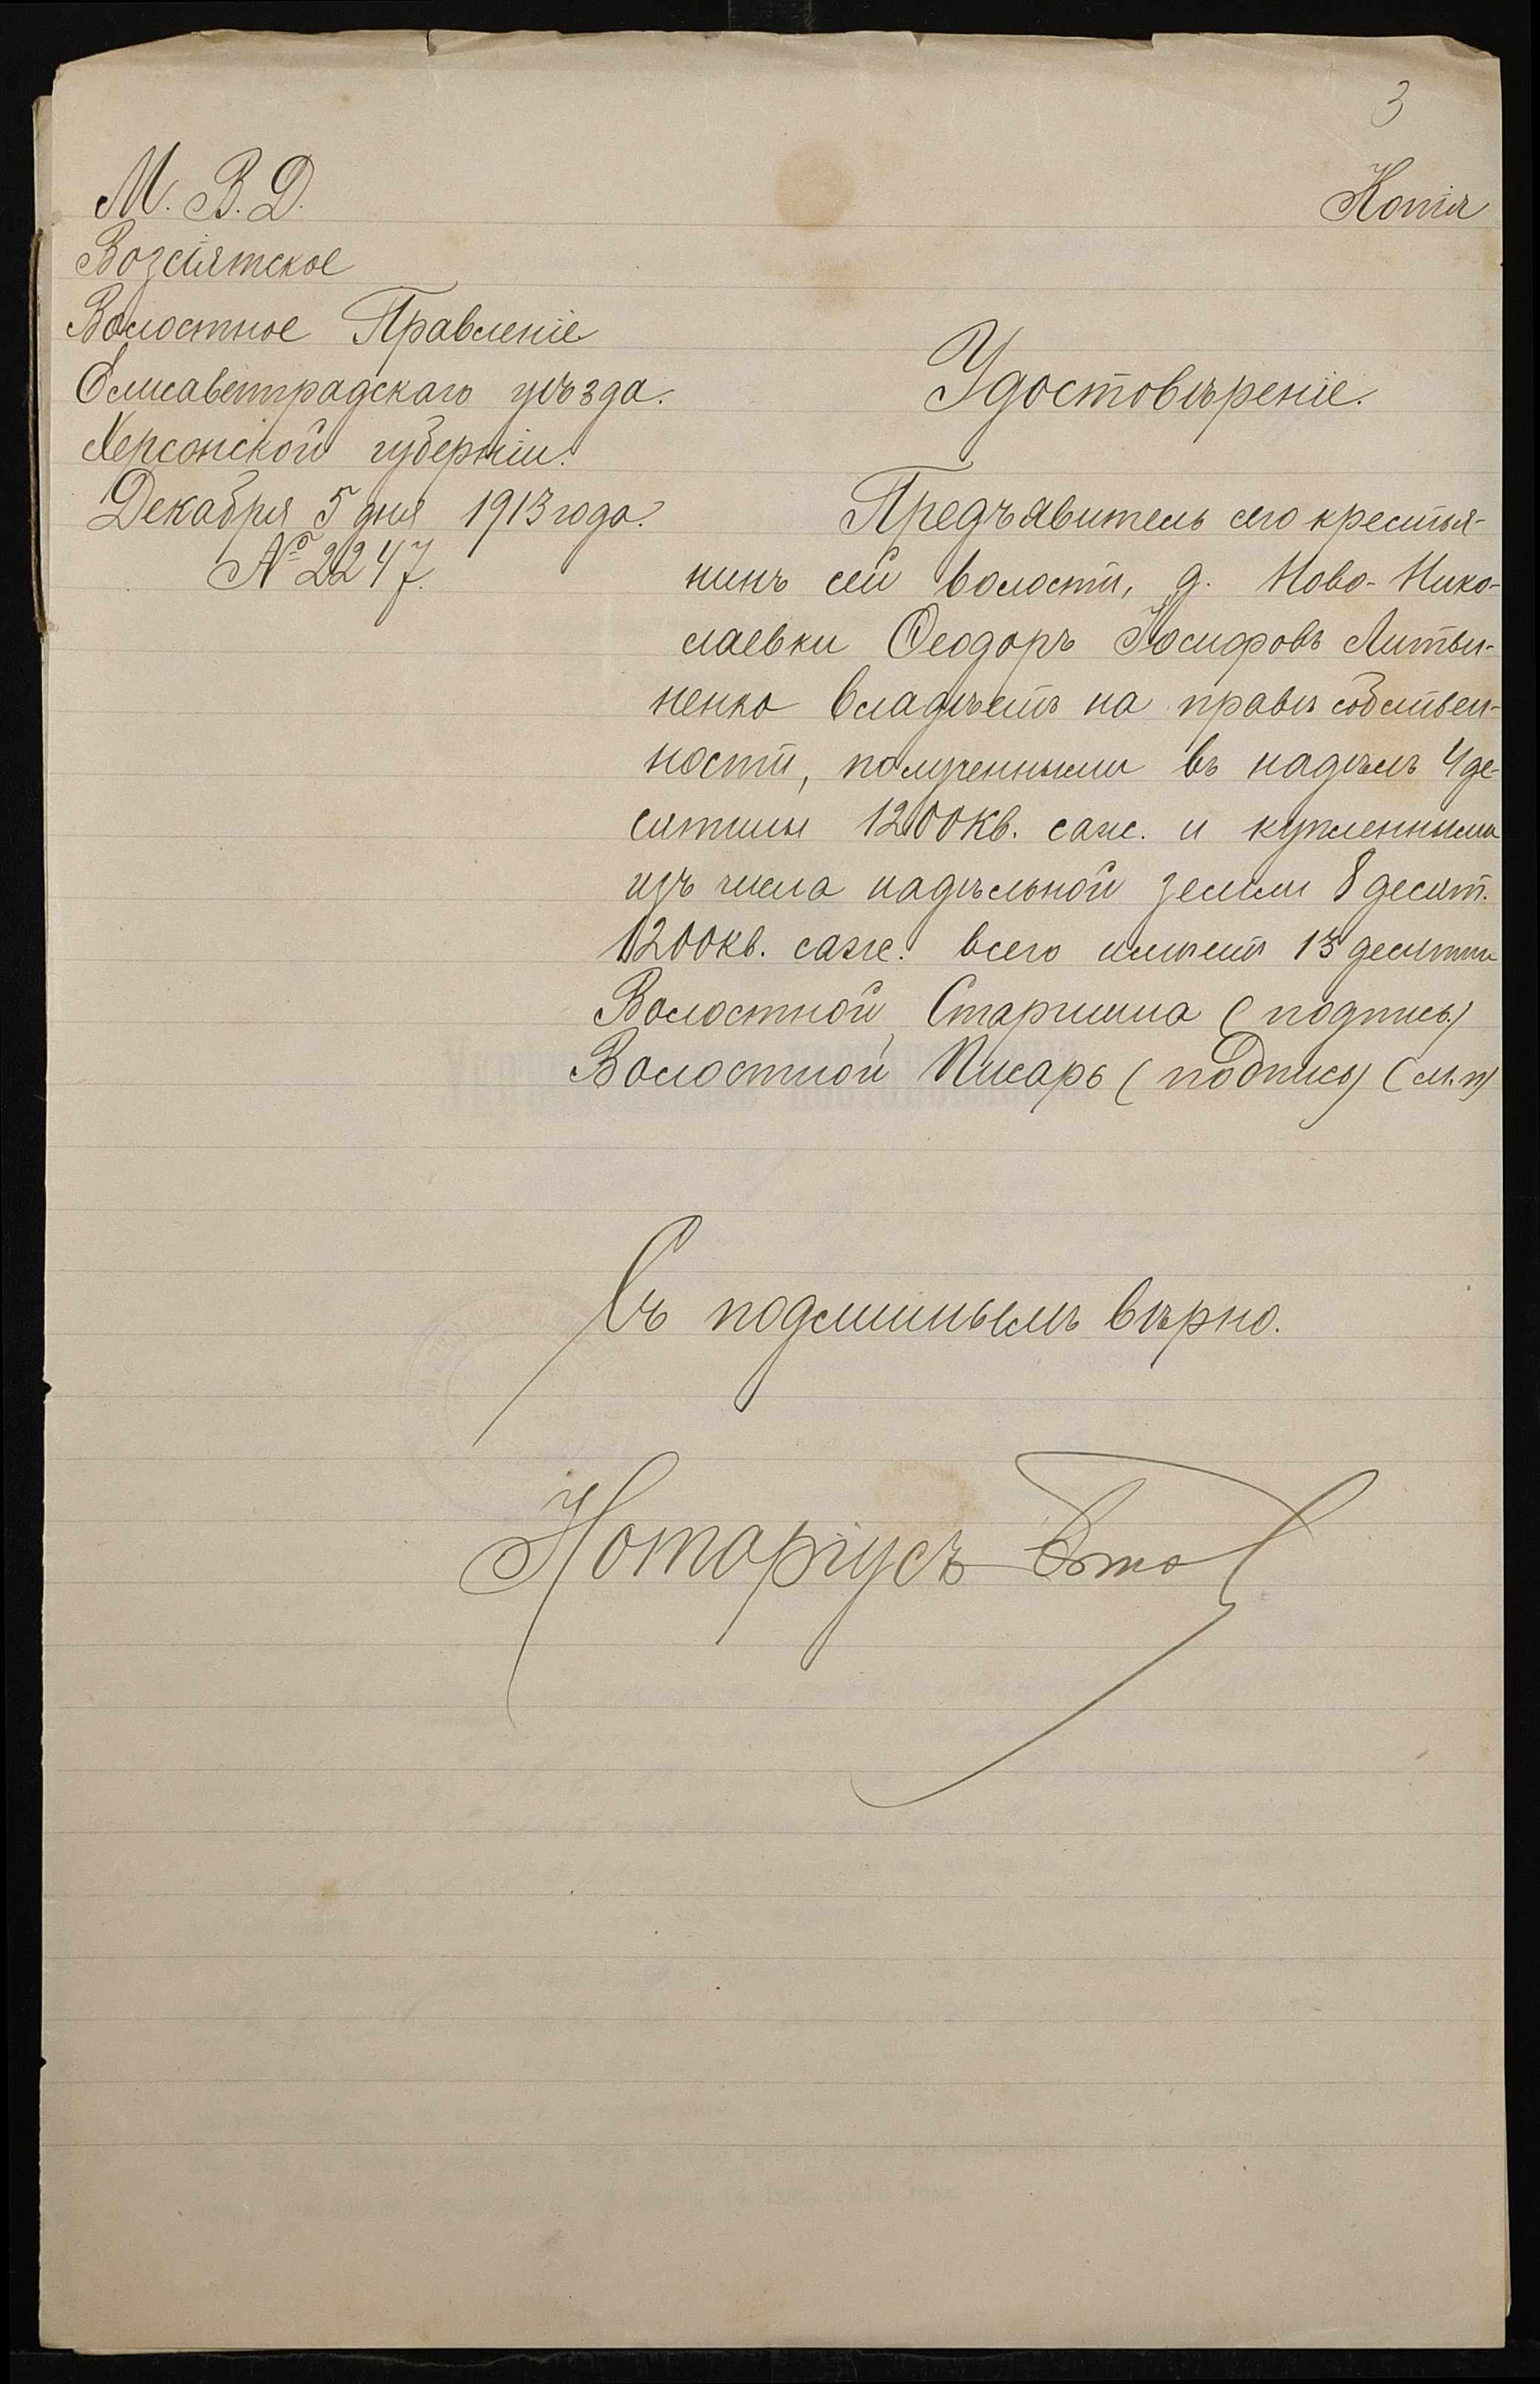 3
Копія
М. В. Д.
Возсіятское
Волостное Правленіе
Елисаветградскаго уѣзда.
Херсонской губерніи.
Декабря 5 дня 1913 года.
№ 2247.
Удостовѣреніе.
Предъявитель сего крестья-
нинъ сей волости, д. Ново-Нико-
лаевки Ѳеодоръ Іосифовъ Литви-
ненко владѣетъ на правѣ собствен-
ности, полученными въ надѣлъ 4 де-
сятины 1200 кв. саж. и купленными
изъ числа надѣльной земли 8 десят.
1200 кв. саж. всего имѣетъ 13 десятин
Волостной Старшина (подпись)
Волостной Писарь (подпись) (м.п)
Съ подлиннымъ вѣрно.
Нотаріусъ